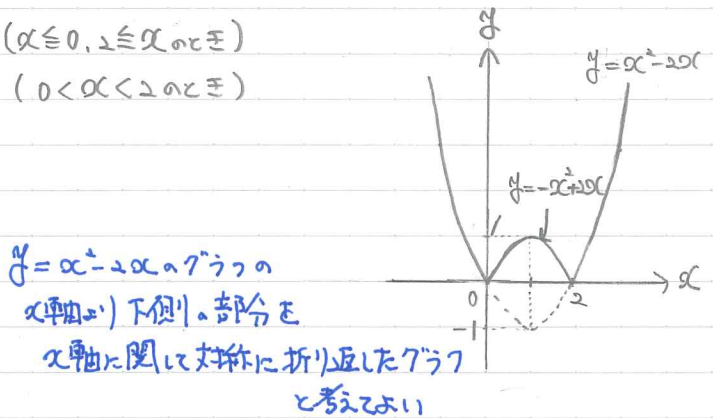 (x≦0, 2≦xのとき)
(0<x<2のとき)
y
y=x²-2x
y=-x²+2x
1
0
2
x
-1
y=x²-2xのグラフの
x軸より下側の部分を
x軸に関して対称に折り返したグラフ
と考えてよい